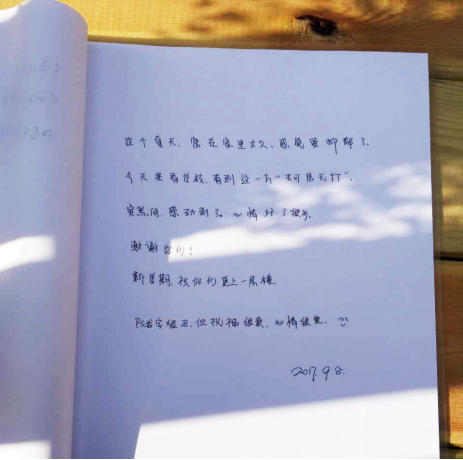 这个夏天,窝在家里太久,感觉要抑郁了。
今天来看学校,看到这一方“不可居无竹”,
突然间,感动到了。心情好了很多
谢谢你们!
新学期,祝你们更上一层楼
PS:字很丑,但祝福很美,心情很美。
2017.9.8.